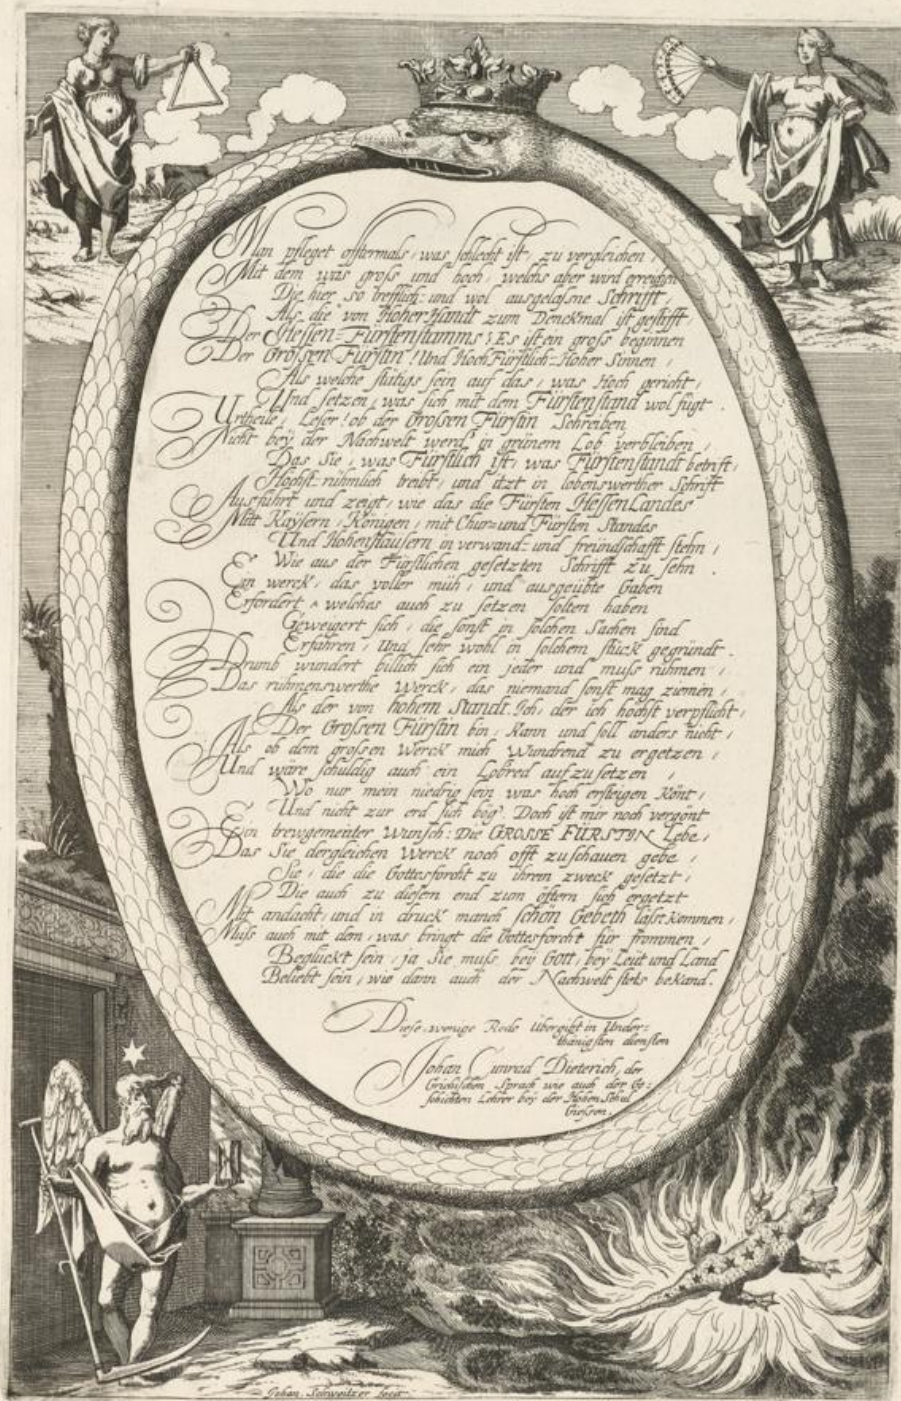 Man pfleget offtermals, was schlecht ist, zu vergleichen,
Mit dem was groß und hoch, welchs aber wird erreichen
Die hier so trefflich: und wol ausgelaßne Schrifft,
Als die von Hoher Handt zum Denckmal ist gestifft,
Der Hessen-Fürstenstamms! Es ist ein groß beginnen
Der Großen Fürstin! Und HochFürstlich-Hoher Sinnen,
Als welche stätigs sein auf das, was Hoch gericht,
Und setzen, was sich mit dem Fürstenstand wol fügt.
Urtheile, Leser! ob der Großen Fürstin Schreiben
Nicht bey der Nachwelt werd' in grünem Lob verbleiben,
Das Sie, was Fürstlich ist, was Fürstenstandt betrift,
Höchst-rühmlich treibt, und itzt in lobenswerther Schrifft
Ausführt und zeigt, wie das die Fürsten HessenLandes
Mitt Kaÿsern, Königen, mit Chur=und Fürsten Standes
Und Hohenhäusern in verwand= und freündschafft stehn,
Wie aus der Fürstlichen gesetzten Schrifft zu sehn.
Ein werck, das voller müh, und ausgeübte Gaben
Erfordert, welches auch zu setzen solten haben
Geweigert sich, die sonst in solchen Sachen sind
Erfahren, Und sehr wohl in solchem stück gegründt.
Drumb wundert billich sich ein jeder und muß rühmen,
Das rühmenswerthe Werck, das niemand sonst mag ziemen,
Als der von hohem Standt. Ich, der ich höchst verpflicht,
Der Großen Fürstin bin, Kann und soll anders nicht,
Als ob dem großen Werck mich Wundrend zu ergetzen,
Und wäre schuldig auch ein Lobred aufzusetzen,
Wo nur mein niedrig sein was hoch ersteigen Könt,
Und nicht zur erd sich bög'. Doch ist mir noch vergönt
Ein trewgemeinter Wunsch: Die GROSSE FÜRSTIN Lebe,
Das Sie dergleichen Werck noch offt zuschauen gebe,
Sie, die die Gottesforcht zu ihrem zweck gesetzt,
Die auch zu diesem end zum öftern sich ergetzt
Mit andacht, und in druck manch schön Gebeth läßt kommen,
Muß auch mit dem, was bringt die Gottesforcht für frommen,
Beglückt sein, ja Sie muß bey Gott, bey Leüt und Land
Beliebt sein, wie dann auch der Nachwelt stets bekand.
Diese wenige Rede Übergibt in Under=
thänigsten diensten
Johan Cunrad Dieterich, der
Grichischen Sprach wie auch der Ge=
schichten Lehrer bey der Hohen Schul
Giessen.
Johan. Schweitzer fecit